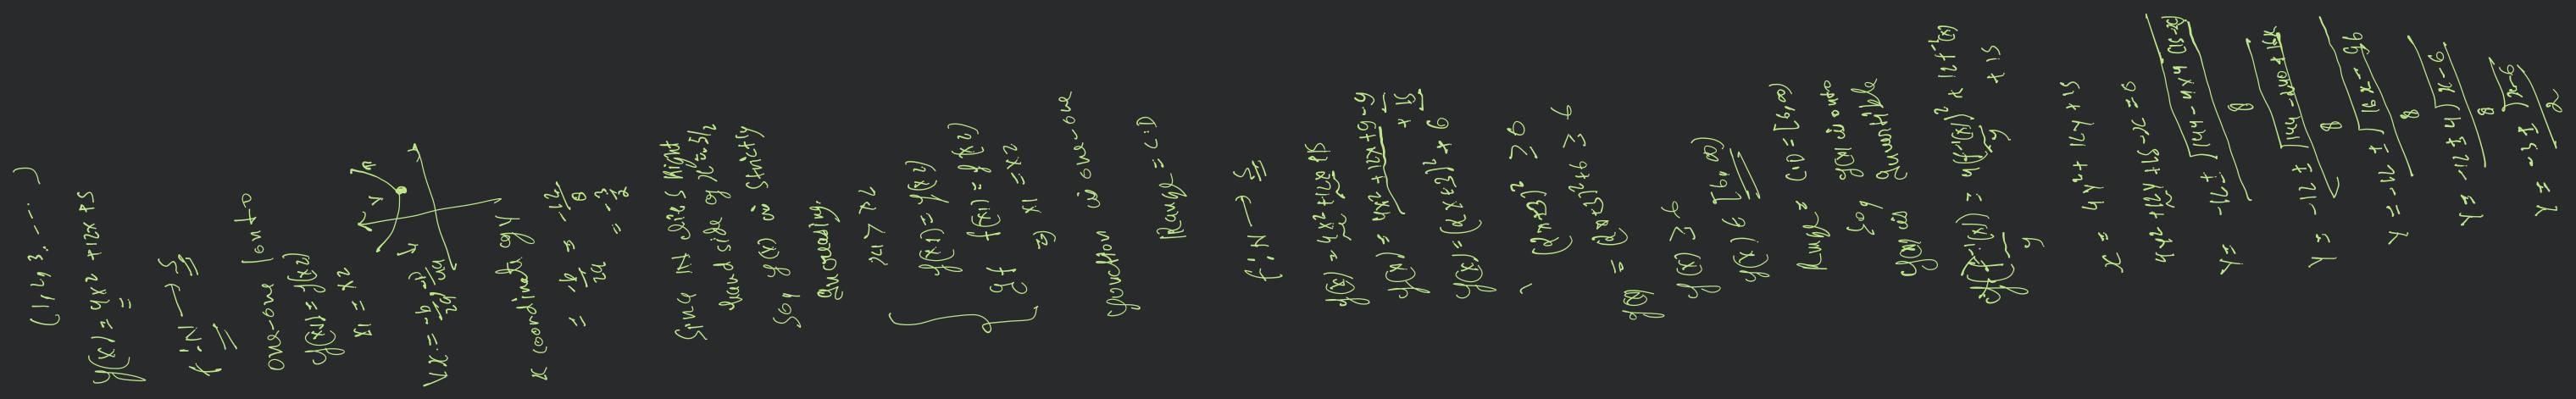 (1, 2, 3, ... )
f(x) = 4x² + 12x + 15
f: N → S
one-one | onto
f(x1) = f(x2)
x1 = x2
Vx = -b/2a
x coordinate of V
= -b/2a = -12/8 = -3/2
Since N lies Right
hand side of
So f(x) is strictly
increasing.
x1 > x2
f(x1) = f(x2)
if f(x1) = f(x2)
⇒ x1 = x2
function is one-one
Range = C.D
f: N → S
f(x) = 4x² + 12x + 15
f(x) = 4x² + 12x + 9 - 9 + 15
f(x) = (2x+3)² + 6
(2x+3)² ≥ 0
f(x) = (2x+3)² + 6 ≥ 6
f(x) ≥ 6
f(x) ∈ [6, ∞)
Range = CD = [6, ∞)
So f(x) is onto
f(x) is invertible
f(f⁻¹(x)) = 4(f⁻¹(x))² + 12f⁻¹(x) + 15
y y
x = 4y² + 12y + 15
4y² + 12y + 15 - x = 0
y = -12 ± √144 - 4×4(15-x) / 8
y = -12 ± √144 - 240 + 16x / 8
y = -12 ± √16x - 96 / 8
y = -12 ± 4√x-6 / 8
y = -3 ± √x-6 / 2